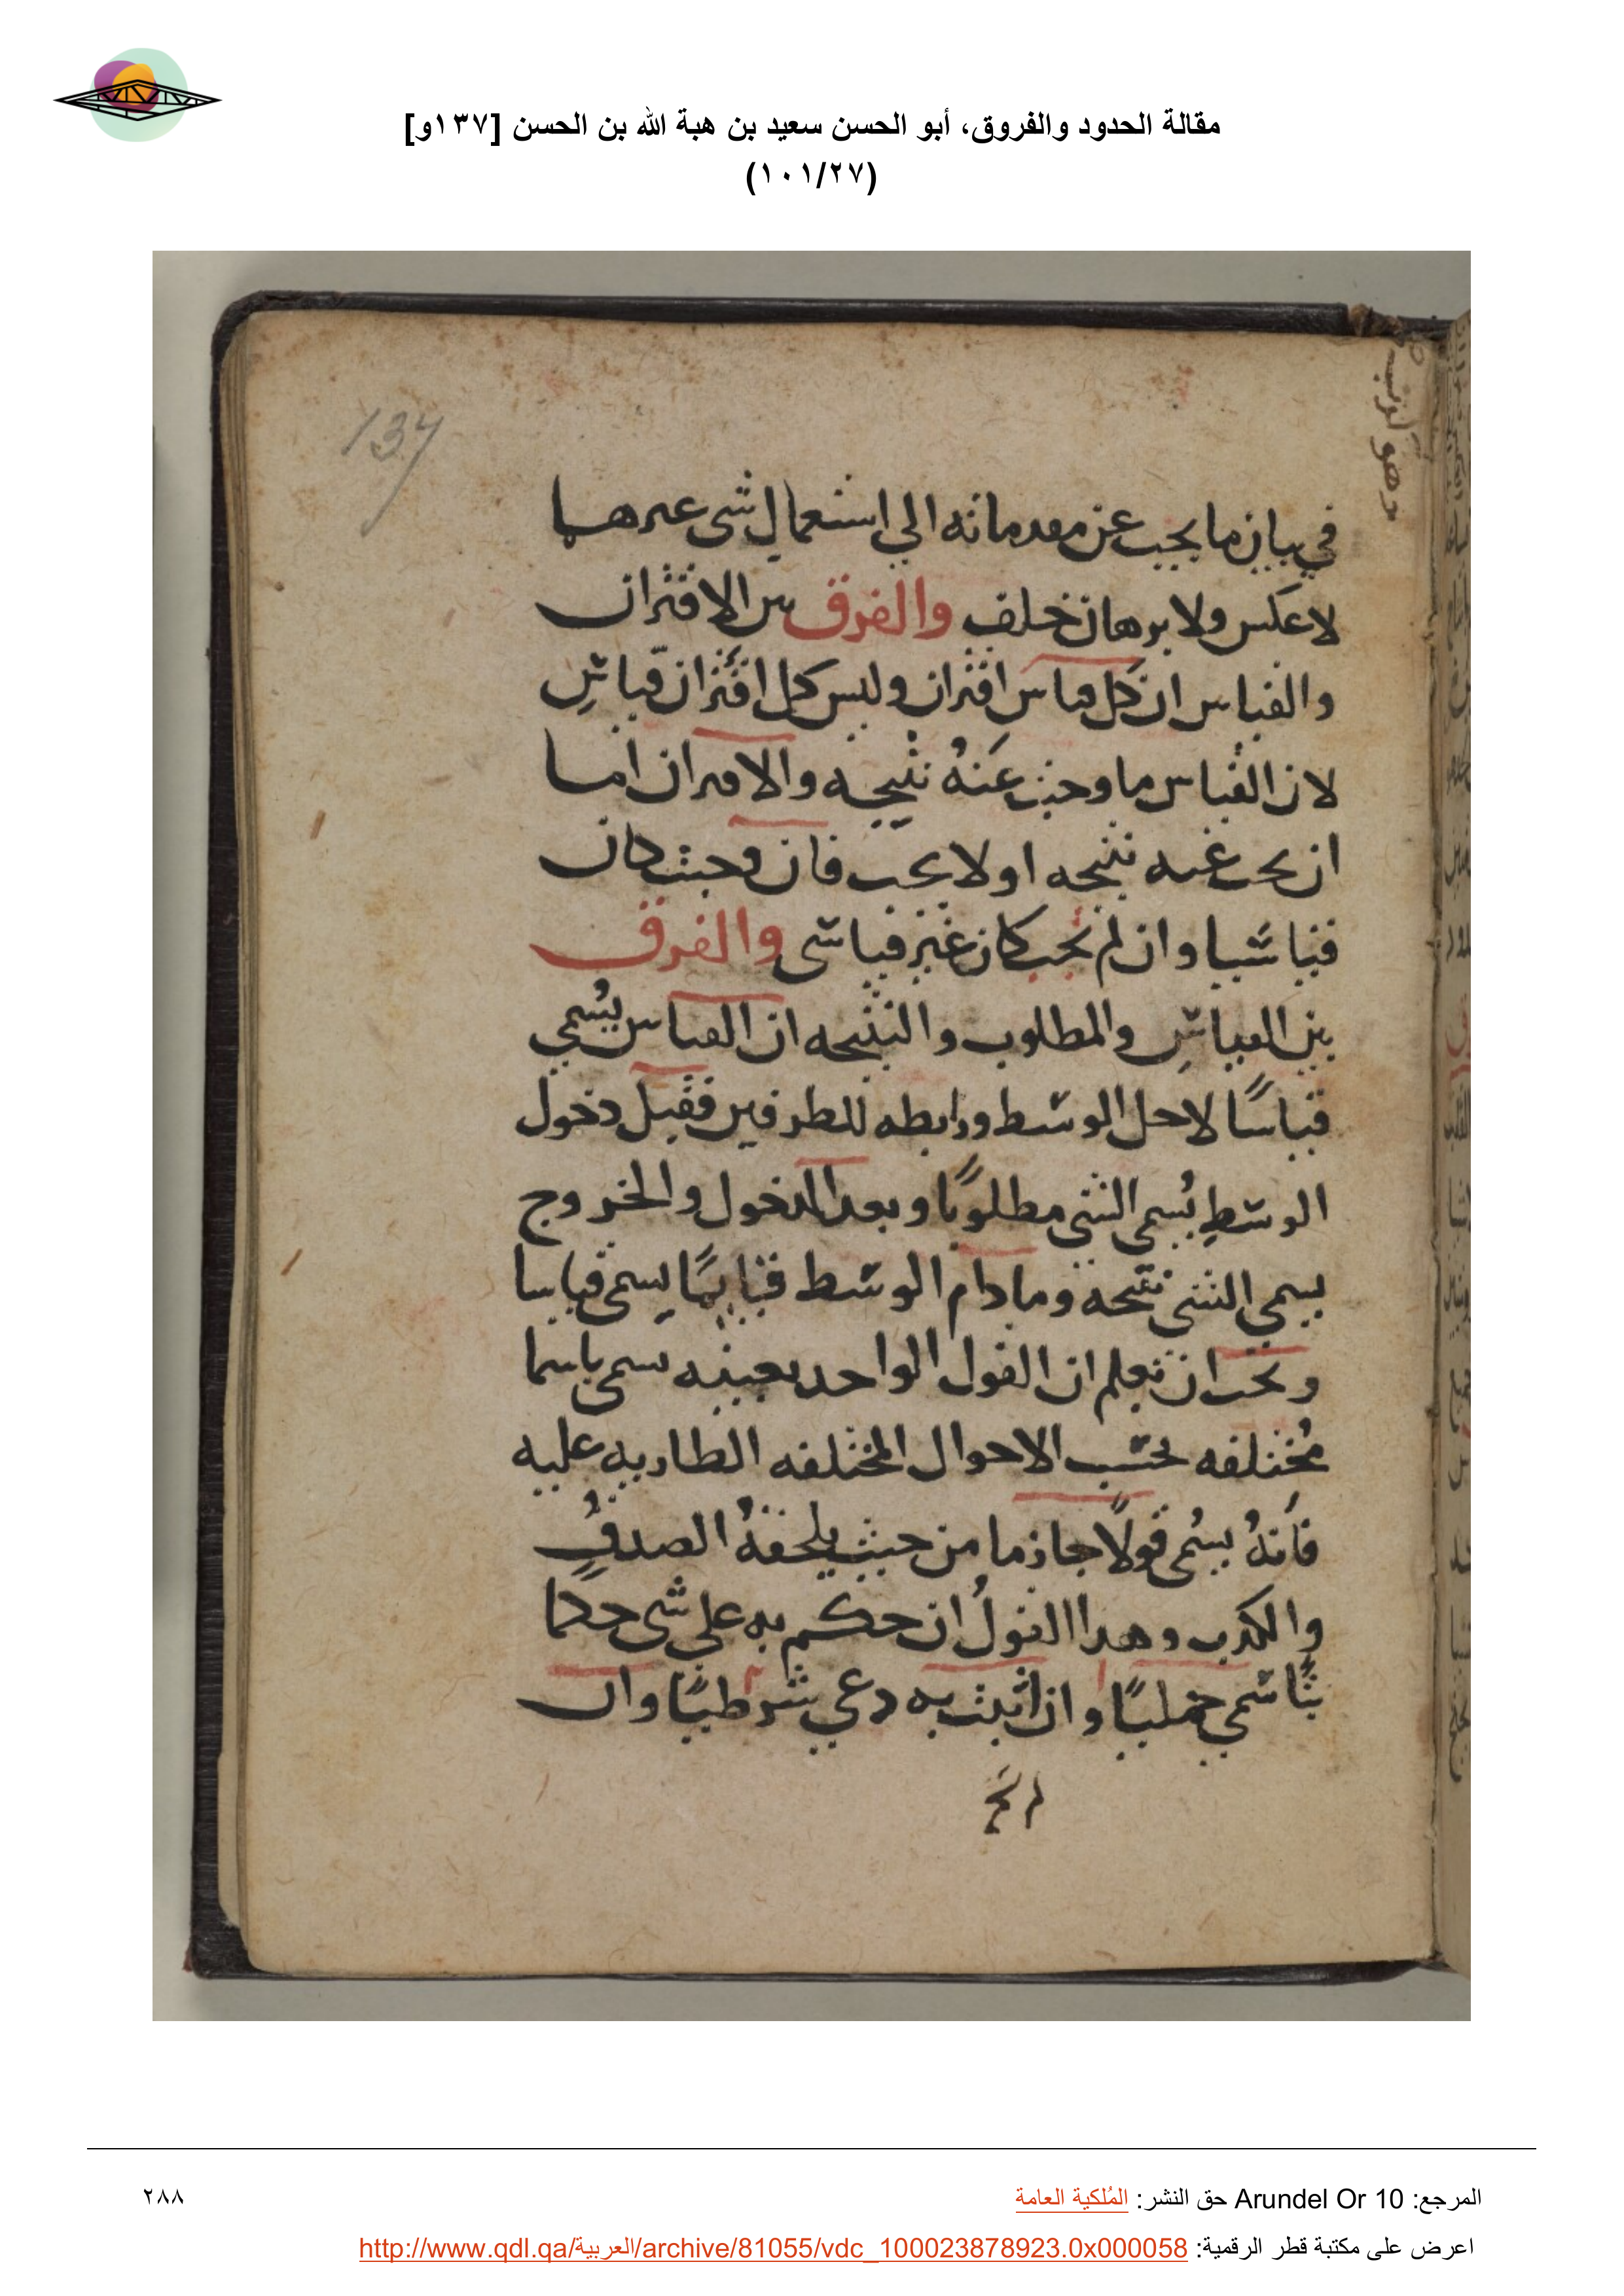 مقالة الحدود والفروق، أبو الحسن سعيد بن هبة الله بن الحسن [١٣٧و]
(١٠١/٢٧)
137
في بيان ما يجب عن مقدماته الي استعمال شي غيرهما
لا عكس ولا برهان خلف والفرق بين الاقتران
والقياس ان كل قياس اقتران وليس كل اقتران قياس
لان القياس ما وجبت عنه نتيجه والاقتران اما
ان يجب عنه نتيجه او لا يجب فان وجبت كان
قياسيا وان لم يجب كان غير قياسي والفرق
بين القياس والمطلوب والنتيجه ان القياس يسمي
قياسًا لاجل الوسط ورابطه للطرفين فقبل دخول
الوسط يسمي الشي مطلوبًا وبعد الدخول والخروج
يسمي الشي نتيجه وما دام الوسط قايمًا يسمي قياسا
ويجب ان تعلم ان القول الواحد بعينه يسمي باسما
مختلفه بحسب الاحوال المختلفه الطاريه عليه
فانهُ يسمي قولًا جازما من حيث يلحقهُ الصدق
والكذب وهذا القولُ ان حكم به علي شي حكما
بتًا سمي حمليًا وان اثبت به دعي شرطيًا وان
المرجع: Arundel Or 10 حق النشر: المُلكية العامة
٢٨٨
اعرض على مكتبة قطر الرقمية: http://www.qdl.qa/العربية/archive/81055/vdc_100023878923.0x000058